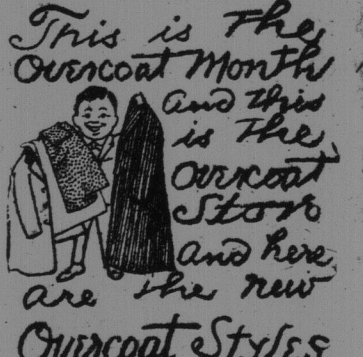 This is the
Overcoat Month
and this
is the
overcoat
Store
and here
are the new
Overcoat Styles